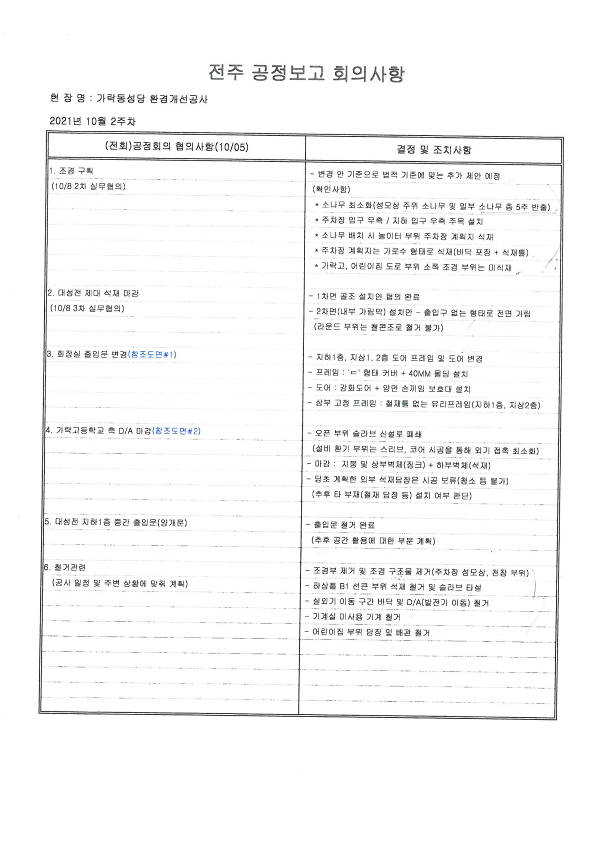 전주 공정보고 회의사항
현 장 명 : 가락동성당 환경개선공사
2021년 10월 2주차
(전회)공정회의 협의사항(10/05)
결정 및 조치사항
1. 조경 구획
(10/8 2차 실무협의)
- 변경 안 기준으로 법적 기준에 맞는 추가 제안 예정
(확인사항)
* 소나무 최소화(성모상 주위 소나무 및 일부 소나무 총 5주 반출)
* 주차장 입구 우측 / 지하 입구 우측 주목 설치
* 소나무 배치 시 놀이터 부위 주차장 계획지 식재
* 주차장 계획지는 가로수 형태로 식재(바닥 포장 + 식재틀)
* 가락고, 어린이집 도로 부위 소폭 조경 부위는 미식재
2. 대성전 제대 석재 마감
(10/8 3차 실무협의)
- 1차면 골조 설치안 협의 완료
- 2차면(내부 가림막) 설치안 - 출입구 없는 형태로 전면 가림
(라운드 부위는 철콘조로 철거 불가)
3. 화장실 출입문 변경(참조도면#1)
- 지하1층, 지상1, 2층 도어 프레임 및 도어 변경
- 프레임 : 'ㄷ' 형태 커버 + 40MM 몰딩 설치
- 도어 : 강화도어 + 양면 손끼임 보호대 설치
- 상부 고정 프레임 : 철재틀 없는 유리프레임(지하1층, 지상2층)
4. 가락고등학교 측 D/A 마감(참조도면#2)
- 오픈 부위 슬라브 신설로 폐쇄
(설비 환기 부위는 스리브, 코어 시공을 통해 외기 접촉 최소화)
- 마감 : 지붕 및 상부벽체(징크) + 하부벽체(석재)
- 당초 계획한 외부 석재담장은 시공 보류(청소 등 불가)
(추후 타 부재(철재 담장 등) 설치 여부 판단)
5. 대성전 지하1층 중간 출입문(양개문)
- 출입문 철거 완료
(추후 공간 활용에 대한 부분 계획)
6. 철거관련
(공사 일정 및 주변 상황에 맞춰 계획)
- 조경부 제거 및 조경 구조물 제거(주차장 성모상, 천장 부위)
- 하상플 B1 선큰 부위 석재 철거 및 슬라브 타설
- 실외기 이동 구간 바닥 및 D/A(발전기 이동) 철거
- 기계실 미사용 기계 철거
- 어린이집 부위 담장 및 배관 철거